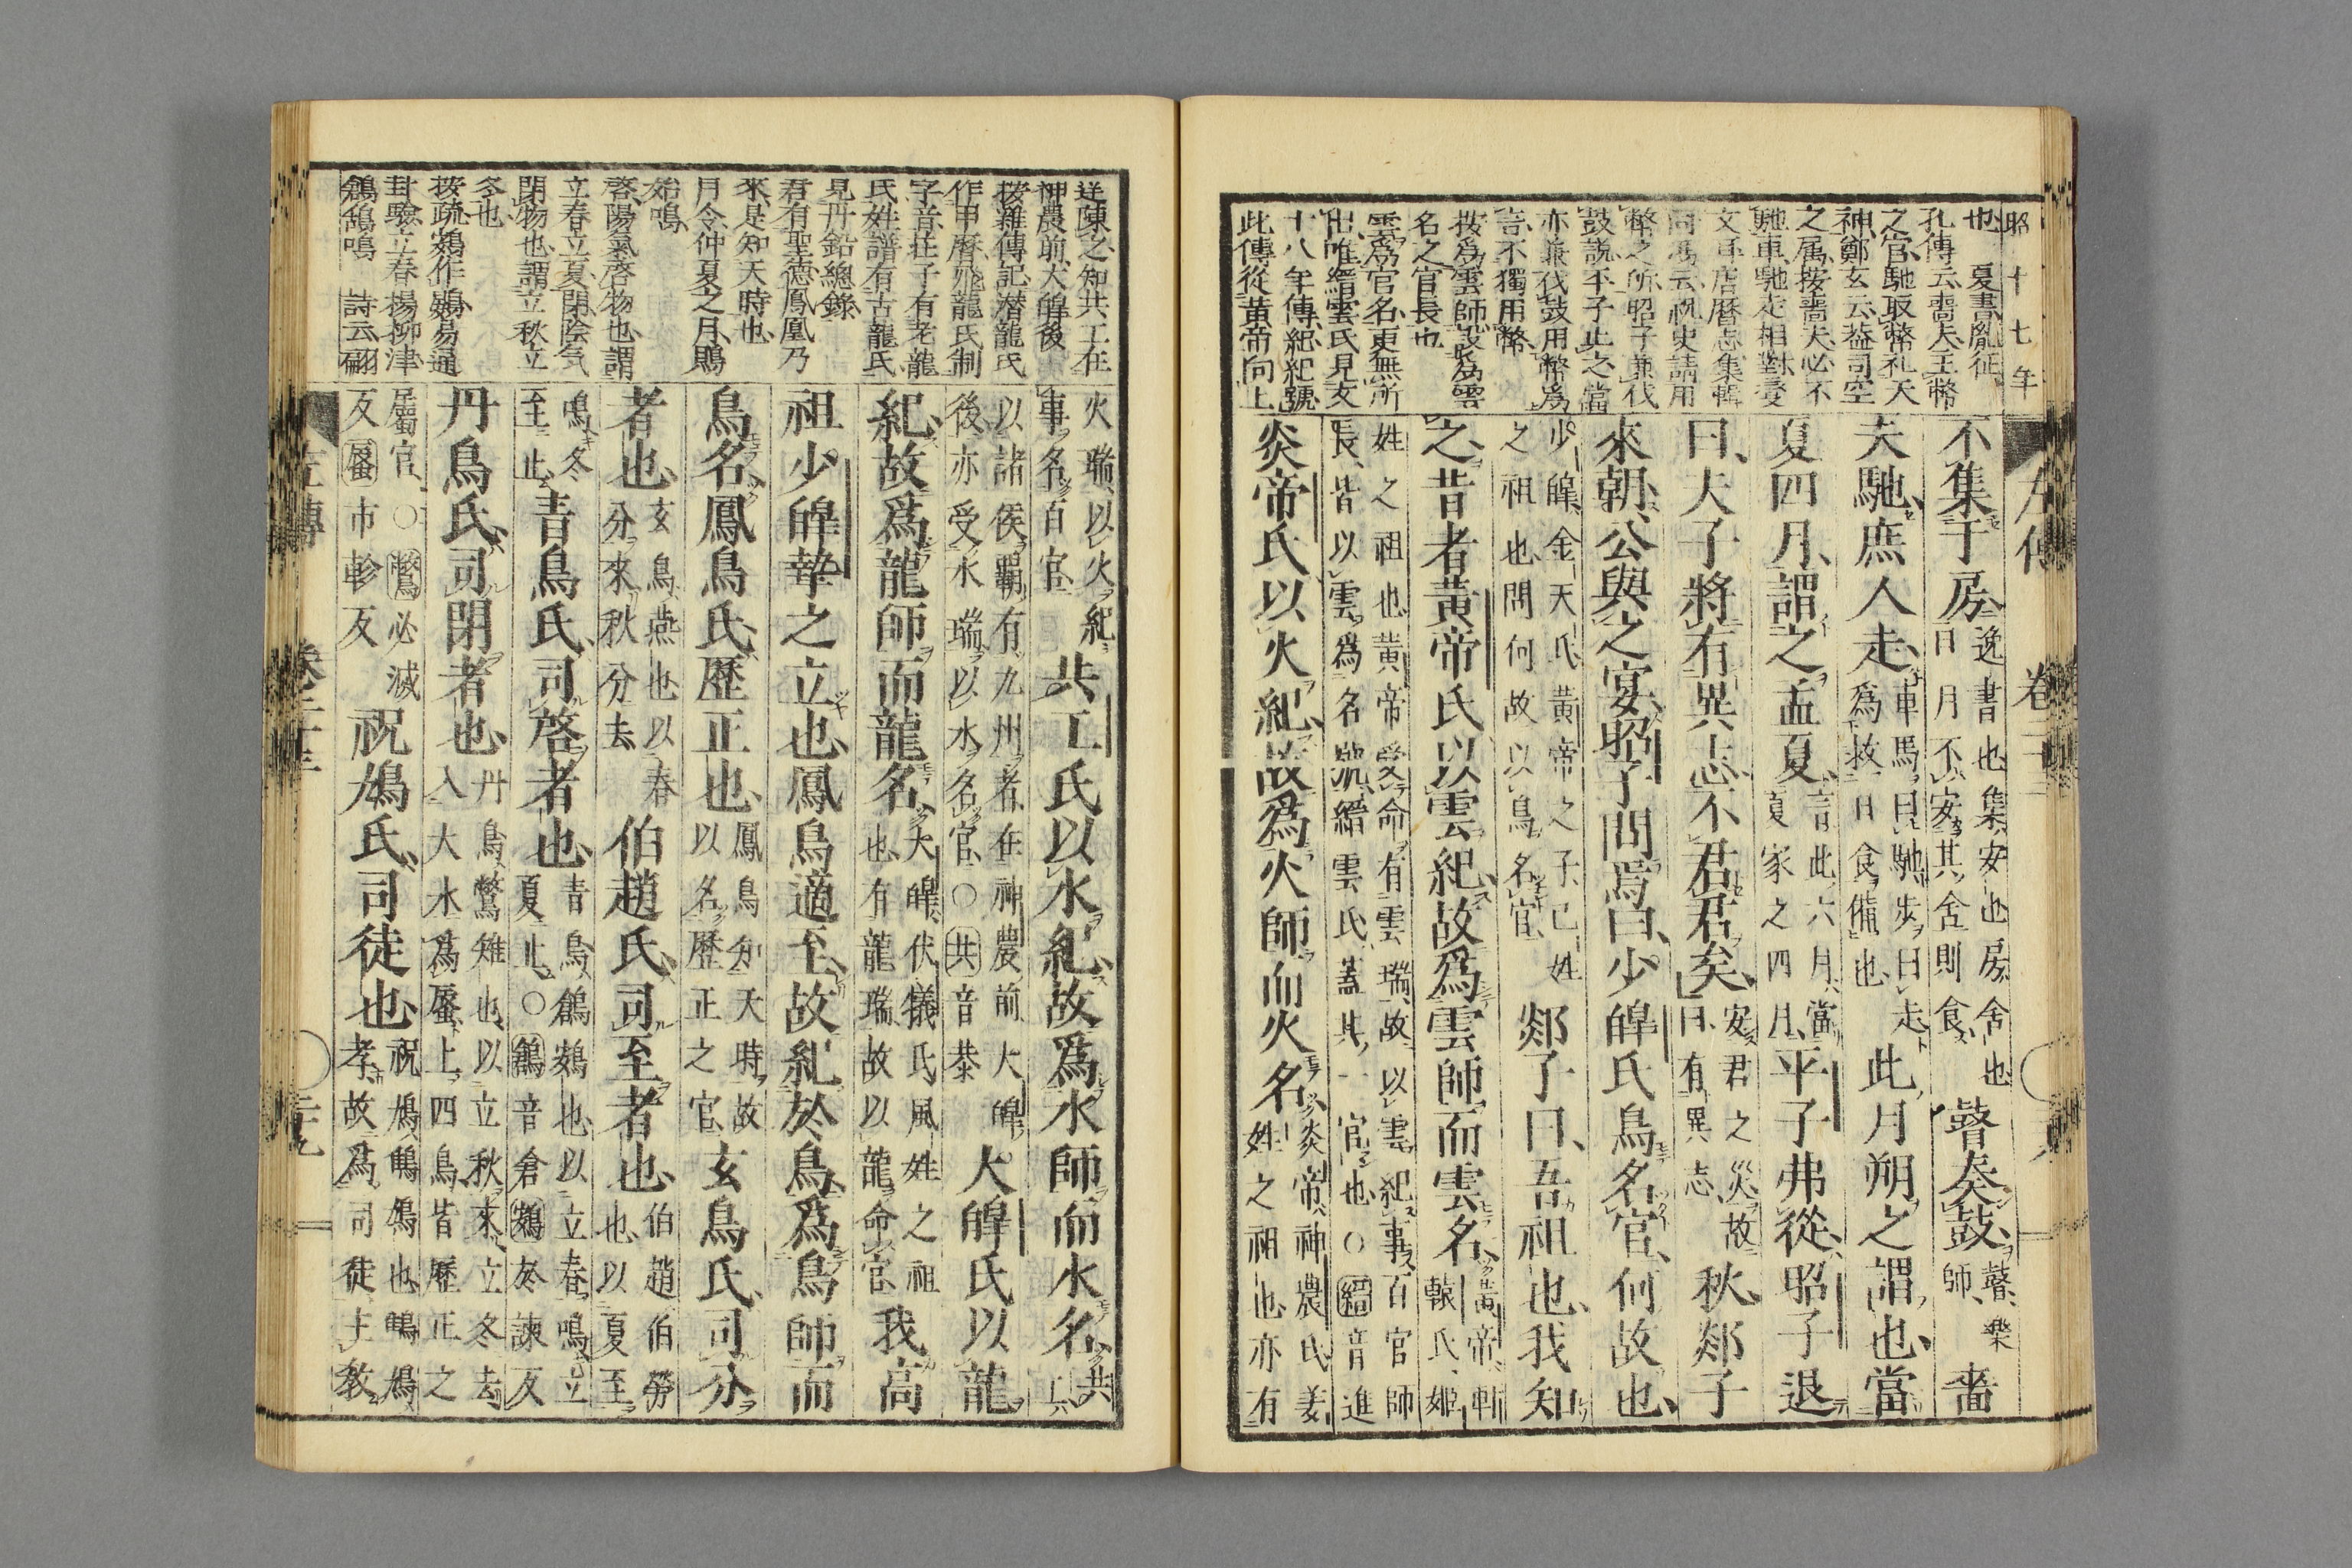 昭十七年
也　夏書胤征
孔傳云嗇夫主幣
之官馳取幣礼天
神鄭玄云蓋司空
之属按嗇夫必不
馳車馳走相對
文耳唐曆志集輯
同馮云祝史請用
幣之所昭子兼伐
鼓説平子止之當
亦兼伐鼓用幣爲
言不獨用幣
按爲雲師設爲雲
名之官長也
雲爲官名更無所
出唯縉雲氏見文
十八年傳紀紀號
此傳從黃帝向上
左傳　卷二十三
不集于房逸書也集安也房舍也日月不安其舍則食瞽奏鼓瞽樂師嗇
夫馳庶人走車馬曰馳步曰走爲救日食備也此月朔之謂也當
夏四月謂之孟夏言此六月當夏家之四月平子弗從昭子退
曰夫子將有異志不君君矣安君之災故曰有異志秋郯子
來朝公與之宴昭子問焉曰少皥氏鳥名官何故也
少皥金天氏黃帝之子己姓之祖也問何故以鳥名官郯子曰吾祖也我知
之昔者黃帝氏以雲紀故爲雲師而雲名黃帝軒轅氏姬
姓之祖也黃帝受命有雲瑞故以雲紀事百官師長皆以雲爲名號縉雲氏蓋其一官也○縉音進
炎帝氏以火紀故爲火師而火名炎帝神農氏姜姓之祖也亦有
逆陳之知共工在
神農前大皥後
按雜傳記潜龍氏
作甲曆飛龍氏制
字音莊子有老龍
氏姓譜有古龍氏
見丹鉛總錄
君有聖德鳳凰乃
來是知天時也
月令仲夏之月鵙
始鳴
啓陽氣啓物也謂
立春立夏閉陰気
閉物也謂立秋立
冬也
按疏鷃作鴳易通
卦驗立春楊柳津
鶬鴰鳴　詩云翩
火瑞以火紀事名百官共工氏以水紀故爲水師而水名共工
以諸侯霸有九州者在神農前大皥後亦受水瑞以水名官○共音恭大皥氏以龍
紀故爲龍師而龍名大皥伏犧氏風姓之祖也有龍瑞故以龍命官我高
祖少皥摯之立也鳳鳥適至故紀於鳥爲鳥師而
鳥名鳳鳥氏歷正也鳳鳥知天時故以名歷正之官玄鳥氏司分
者也玄鳥燕也以春分來秋分去伯趙氏司至者也伯趙伯勞也以夏至
鳴冬至止青鳥氏司啓者也青鳥鶬鷃也以立春鳴立夏止○鶬音倉鷃於諫反
丹鳥氏司閉者也丹鳥鷩雉也以立秋來立冬去入大水爲蜃上四鳥皆歷正之
屬官○鷩必滅反蜃市軫反祝鳩氏司徒也祝鳩鷦鳩也鷦鳩孝故爲司徒主敎
左傳　卷二十三　二十九